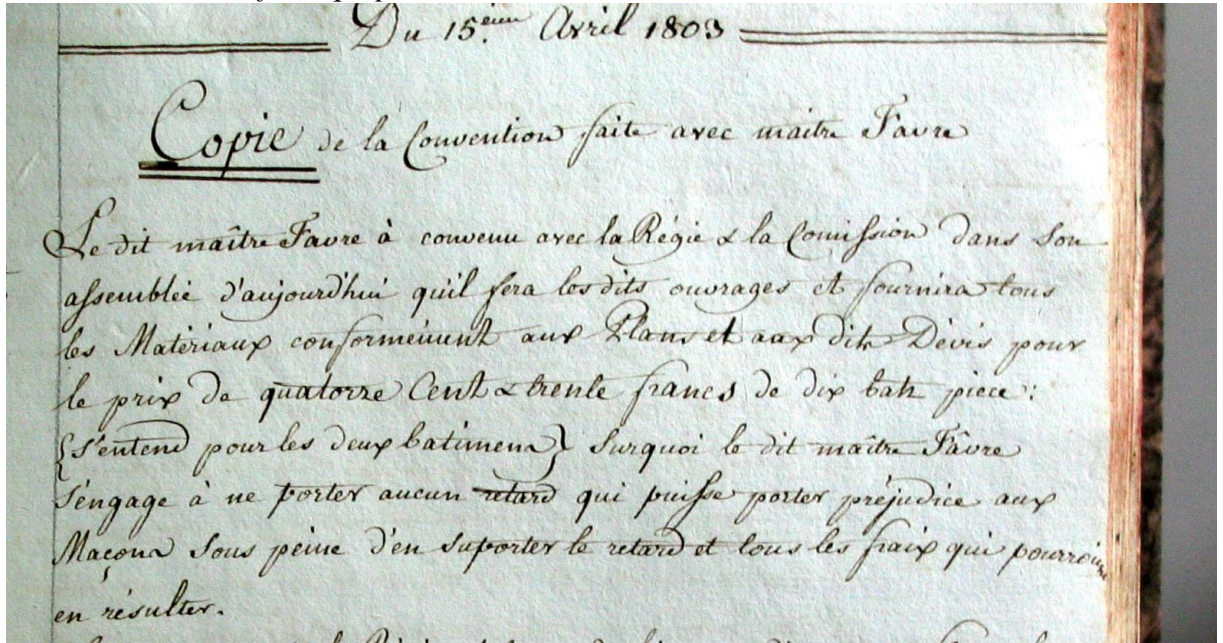 Du 15.ème Avril 1803
Copie de la Convention faite avec maitre Favre
Le dit maître Favre à convenu avec la Régie & la Comission dans Son
assemblée d'aujourd'hui qu'il fera les dits ouvrages et fournira tous
les Matériaux conformément aux Plans et aux dits Dévis pour
le prix de quatorze Cent & trente francs de dix batz piece:
{S'entend pour les deux batimens} Surquoi le dit maître Favre
S'engage à ne porter aucun retard qui puisse porter préjudice aux
Maçons Sous peine d'en suporter le retard et tous les fraix qui pourroient
en résulter.